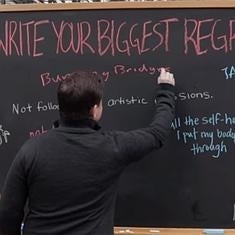 WRITE YOUR BIGGEST REGR
Burning Bridges
Not follo artistic sions.
all the self-h
I put my body
through